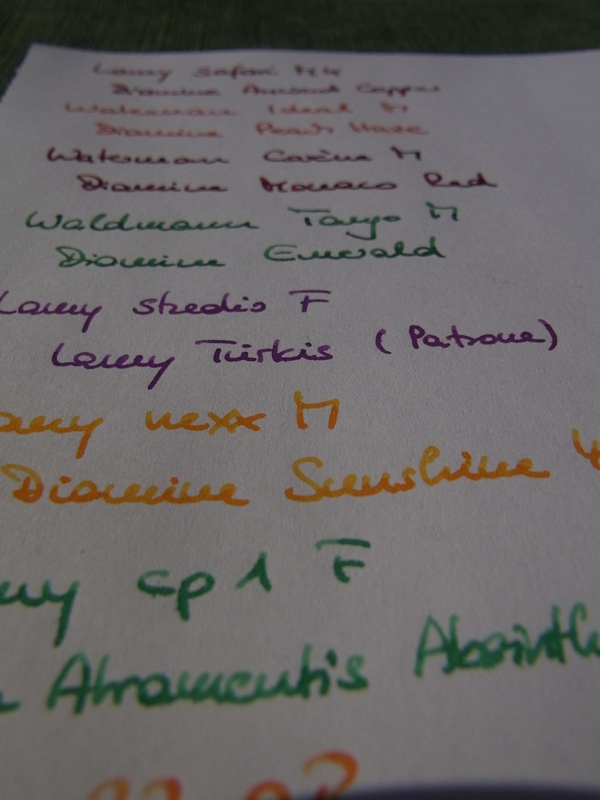 Lamy safari MK
Diamine Ancient Copper
Waterman Ideal M
Diamine Peach Haze
Waterman Carène M
Diamine Monaco Red
Waldmann Tango M
Diamine Emerald
Lamy studio F
Lamy Türkis (Patrone)
amy nexx M
Diamine Sunshine
my cp 1 F
Atramentis Absinth